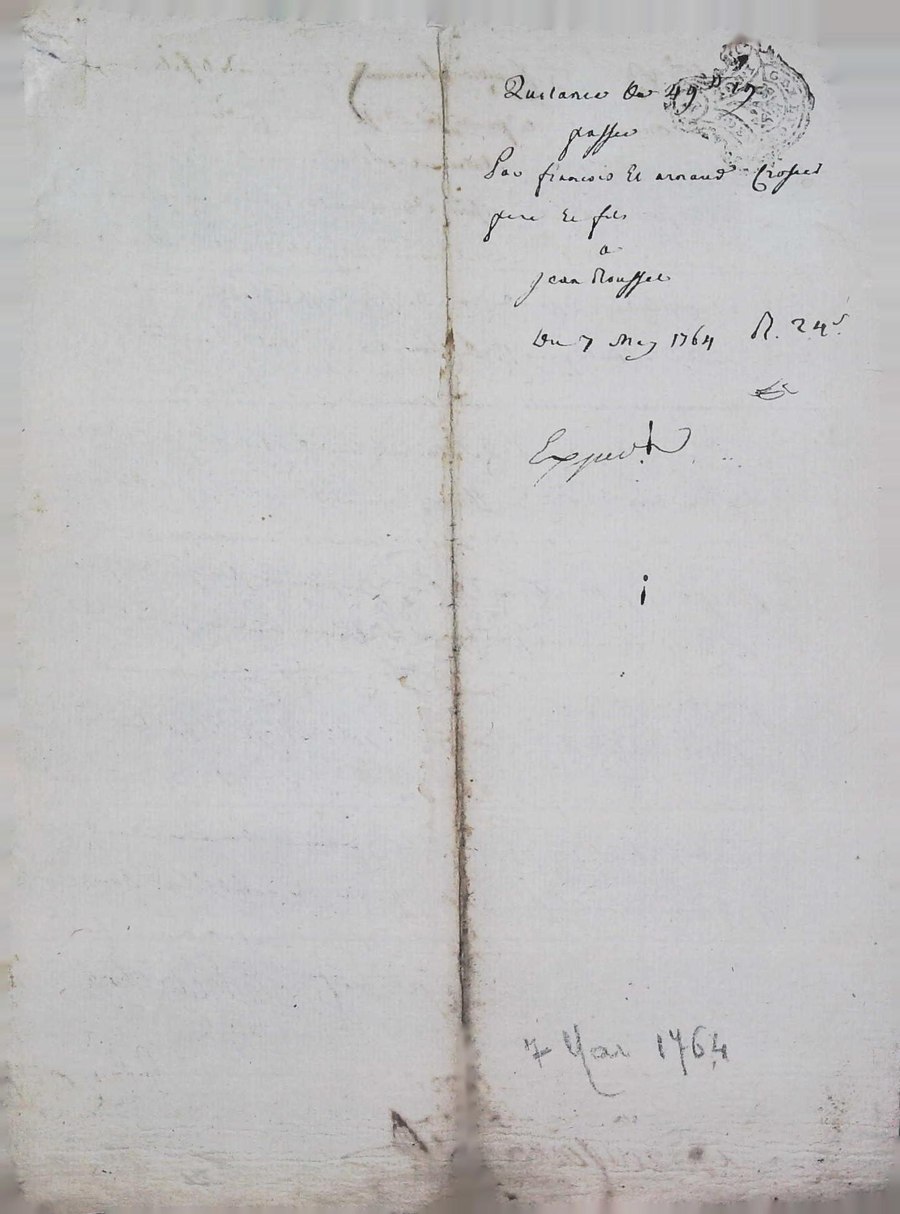 Quitance de 49 ᴸ 19
passée
Par francois Et arnaud Crosat
pere Et fils
a
jean Roussel
Du 7 May 1764 R. 24ˢ
Expedié
7 Mai 1764